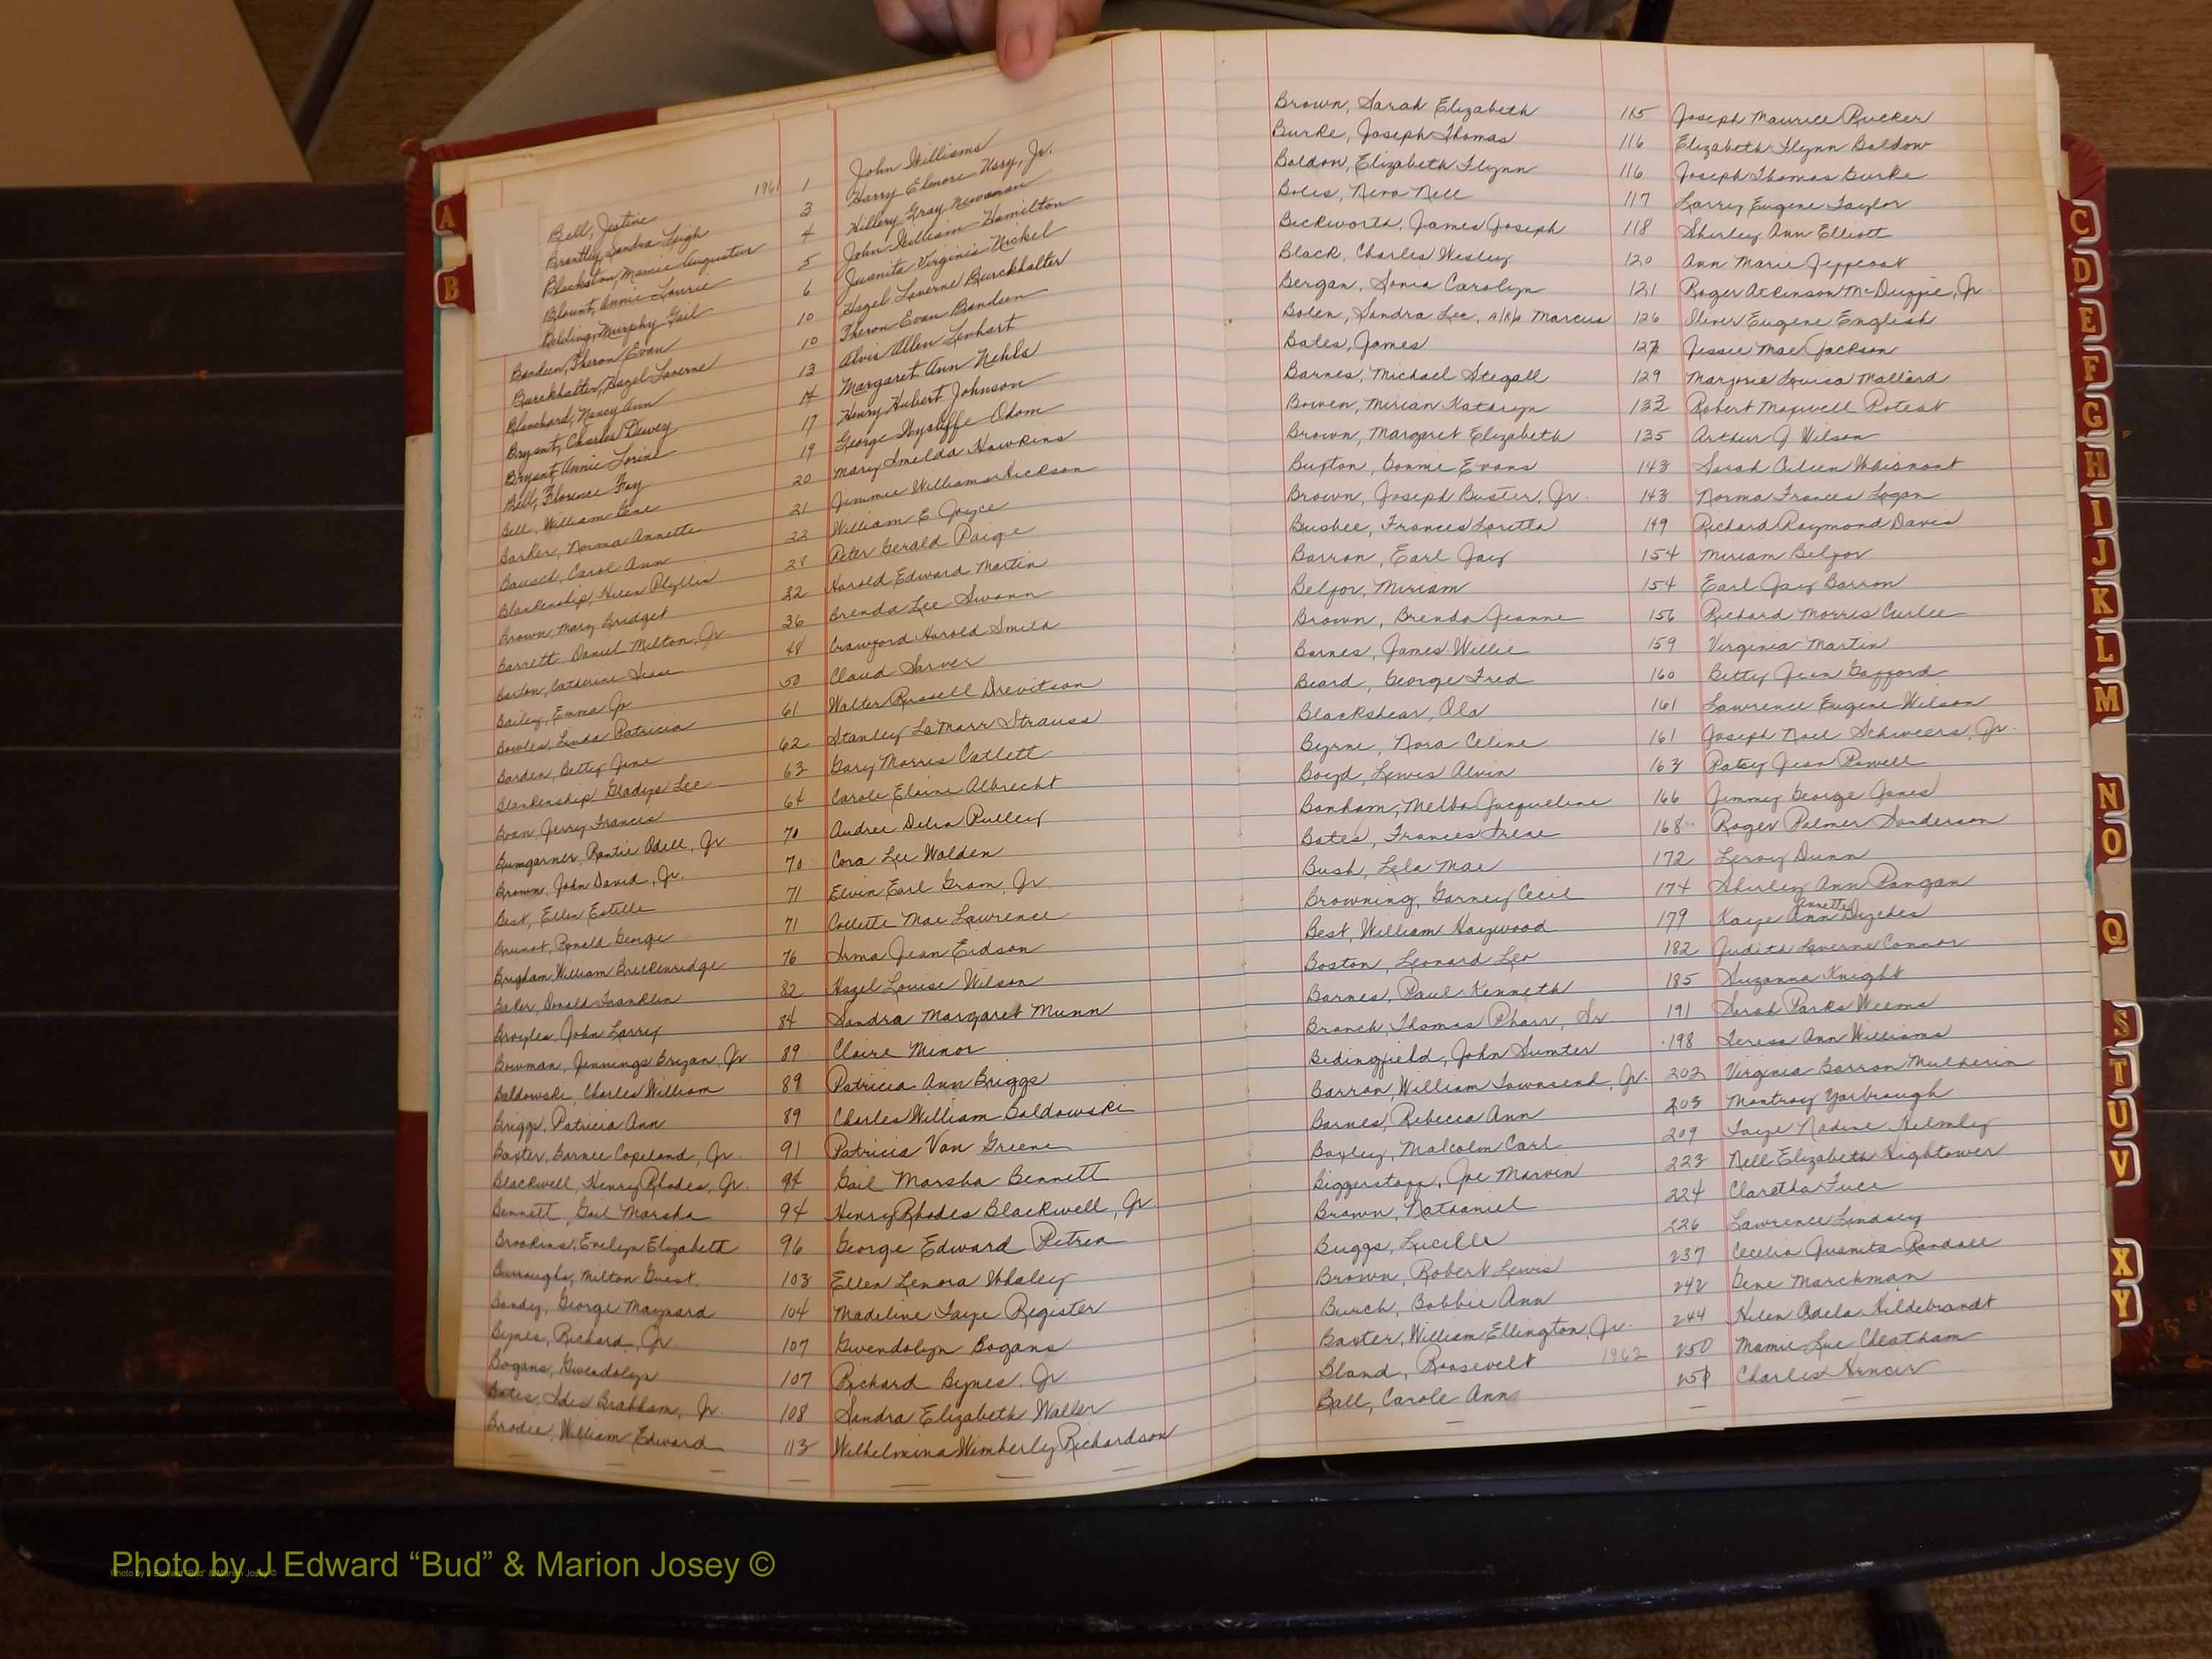 1961
Bell, Justine 1 John Williams
Brantley, Sandra Leigh 3 Harry Elmore Usry, Jr.
Blackston, Mamie Augustus 4 Hillery Gray Newman
Blount, Annie Laurie 5 John William Hamilton
Belding, Murphy Gail 6 Juanita Virginia Nickel
Bandeen, Theron Evan 10 Hazel Laverne Burckhalter
Burckhalter, Hazel Laverne 10 Theron Evan Bandeen
Blanchard, Nancy Ann 13 Alvis Allen Lenhart
Bryant, Charles Dewey 14 Margaret Ann Nehls
Bryant, Annie Lorine 17 Henry Hubert Johnson
Bell, Florence Fay 19 George Wycliffe Odom
Bell, William Gene 20 Mary Imelda Hawkins
Barker, Norma Annette 21 Jimmie Williams Hickson
Bausch, Carol Ann 22 William E Joyce
Blankenship, Helen Phyllis 28 Peter Gerald Paige
Brown, Mary Bridget 32 Harold Edward Martin
Barrett, Daniel Milton, Jr. 36 Brenda Lee Swann
Barton, Catherine 48 Crawford Harold Smith
Bailey, Emma Jo 50 Claud Sarver
Bowles, Linda Patricia 61 Walter Russell Drevitson
Barden, Betty Jane 62 Stanley LaMarr Strauss
Blankenship, Gladys Lee 63 Gary Morris Catlett
Boan, Jerry Francis 64 Carole Elaine Albrecht
Bumgarner, Rantie Odell, Jr. 70 Audree Delra Pulley
Brown, John David, Jr. 70 Cora Lee Walden
Best, Ellen Estelle 71 Elvin Earl Gram, Jr.
Brunot, Ronald George 71 Collette Mae Lawrence
Brigham, William Breckenridge 76 Irma Jean Eidson
Baker, Donald Franklin 82 Hazel Louise Wilson
Broyles, John Larry 84 Sandra Margaret Munn
Bowman, Jennings Bryan, Jr. 89 Claire Minor
Baldowski, Charles William 89 Patricia Ann Briggs
Briggs, Patricia Ann 89 Charles William Baldowski
Baxter, Barnee Copeland, Jr. 91 Patricia Van Greene
Blackwell, Henry Rhodes, Jr. 94 Gail Marsha Bennett
Bennett, Gail Marsha 94 Henry Rhodes Blackwell, Jr.
Brookins, Evelyn Elizabeth 96 George Edward Petrea
Burroughs, Milton Guest 103 Ellen Lenora Whaley
Bandy, George Maynard 104 Madeline Faye Register
Bynes, Richard, Jr. 107 Gwendolyn Bogans
Bogans, Gwendolyn 107 Richard Bynes, Jr.
Bates, Ides Brabham, Jr. 108 Sandra Elizabeth Waller
Brodie, William Edward 113 Wilhelmina Wimberly Richardson
Brown, Sarah Elizabeth 115 Joseph Maurice Rucker
Burke, Joseph Thomas 116 Elizabeth Flynn Baldow
Baldow, Elizabeth Flynn 116 Joseph Thomas Burke
Boles, Nera Nell 117 Larry Eugene Taylor
Beckworth, James Joseph 118 Shirley Ann Elliott
Black, Charles Wesley 120 Ann Marie Jeffcoat
Bergan, Sonia Carolyn 121 Roger Atkinson McDuffie, Jr.
Bolen, Sandra Lee, a/k/a Marcus 126 Oliver Eugene English
Bates, James 127 Jessie Mae Jackson
Barnes, Michael Stegall 129 Marjorie Louisa Mallard
Bowen, Merian Kathryn 132 Robert Maxwell Poteat
Brown, Margaret Elizabeth 135 Arthur J. Wilson
Buxton, Bonnie Evans 143 Sarah Aileen Whisnant
Brown, Joseph Buster, Jr. 143 Norma Frances Logan
Busbee, Frances Loretta 149 Richard Raymond Davis
Barron, Earl Jay 154 Miriam Belfor
Belfor, Miriam 154 Earl Jay Barron
Brown, Brenda Jeanne 156 Richard Morris Curlee
Barnes, James Willie 159 Virginia Martin
Beard, George Fred 160 Betty Jean Gafford
Blackshear, Ola 161 Lawrence Eugene Wilson
Byrne, Nora Celine 161 Joseph Noel Schweers, Jr.
Boyd, Lewis Alvin 163 Patsy Jean Powell
Bonham, Melba Jacqueline 166 Jimmy George Jones
Bates, Frances Irene 168 Roger Palmer Sanderson
Bush, Lela Mae 172 Leroy Dunn
Browning, Garney Cecil 174 Shirley Ann Pangan
Annette
Best, William Haywood 179 Kaye Ann Dyches
Boston, Leonard Leo 182 Judith Laverne Connor
Barnes, Paul Kenneth 185 Suzanna Knight
Branch, Thomas Pharr, Sr. 191 Sarah Parks Weems
Bedingfield, John Sumter 198 Teresa Ann Williams
Barron, William Townsend, Jr. 202 Virginia Barron Mulherin
Barnes, Rebecca Ann 203 Montray Yarbrough
Baxley, Malcolm Carl 209 Faye Nadine Helmley
Biggerstaff, Joe Marvin 223 Nell Elizabeth Hightower
Brown, Nathaniel 224 Claretha Tuce
Buggs, Lucille 226 Lawrence Lindsey
Brown, Robert Lewis 237 Cecelia Juanita Randall
Burch, Bobbie Ann 242 Gene Marchman
Baxter, William Ellington, Jr. 244 Helen Adela Hildebrandt
Bland, Roosevelt 1962 250 Mamie Lue Cheatham
Ball, Carole Ann 251 Charles
A
B
C
D
E
F
G
H
I
J
K
L
M
N
O
Q
S
T
U
V
X
Y
Photo by J Edward “Bud” & Marion Josey ©
Photo by J Edward “Bud” & Marion Josey ©